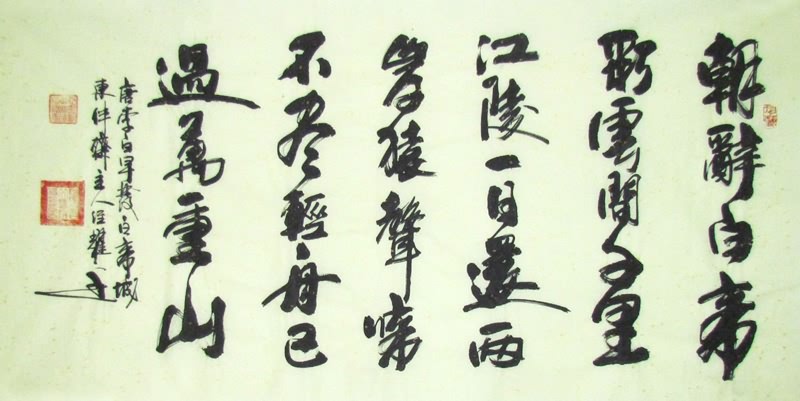 朝辭白帝
彩雲間千里
江陵一日還兩
岸猿聲啼
不尽輕舟已
過萬重山
唐李白早發白帝城
東 主人